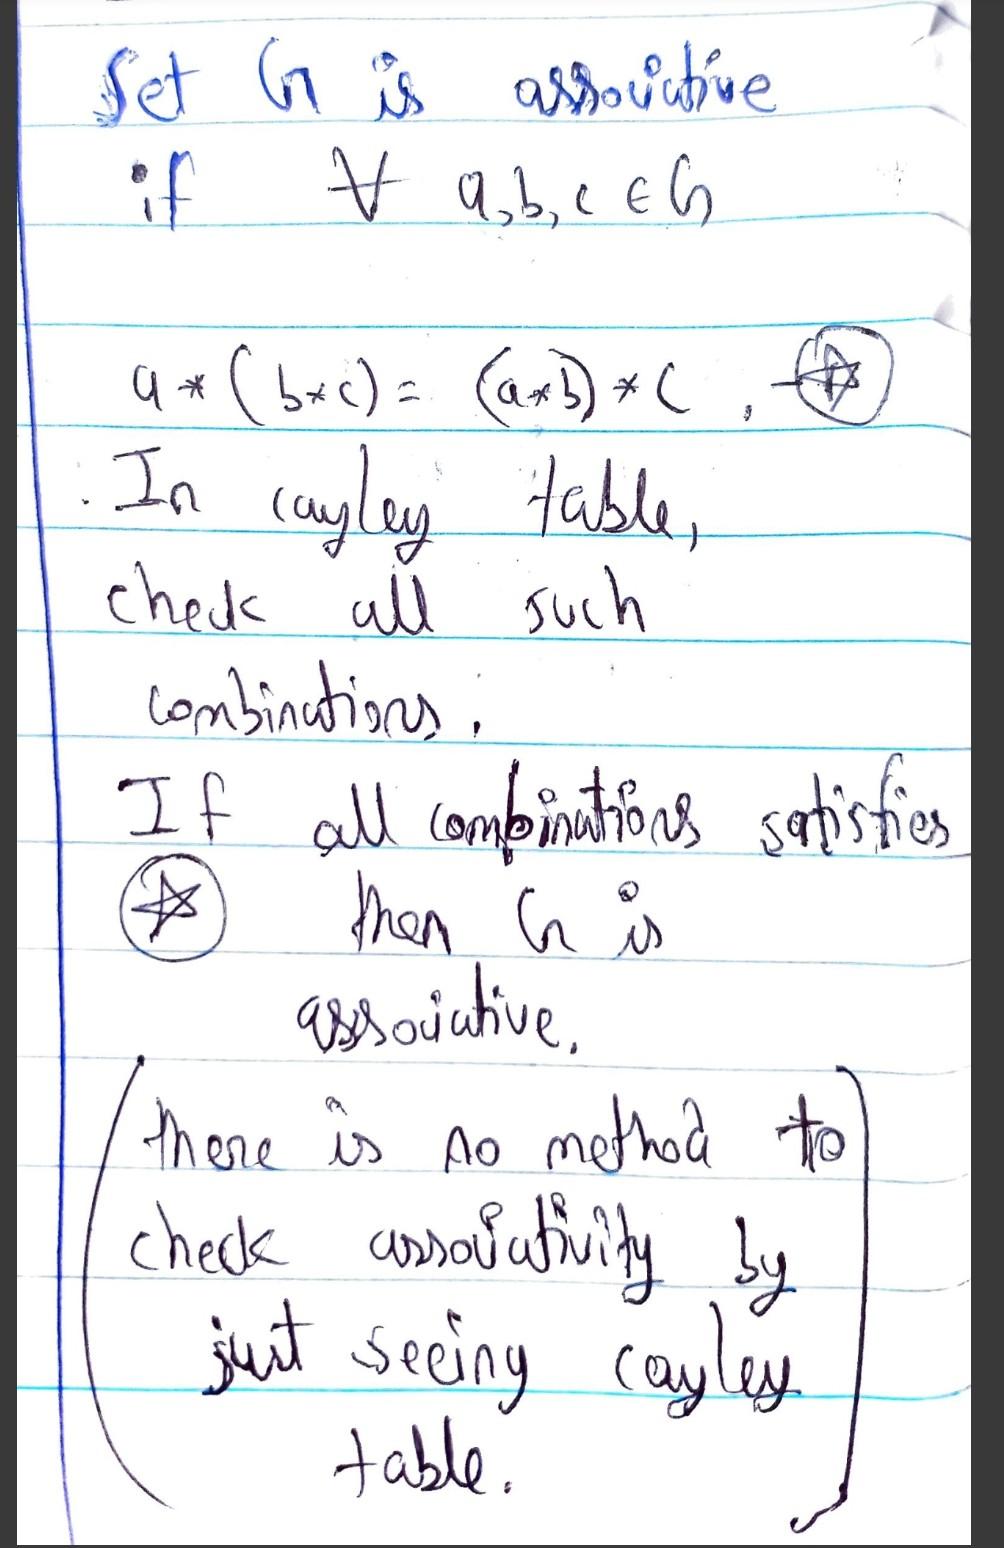 Set G is associative
if ∀ a,b,c ∈ G
a * (b*c) = (a*b) * c , -☆
. In cayley table,
check all such
combinations.
If all combinations satisfies
☆ then G is
associative.
(there is no method to
check associativity by
just seeing cayley
table.)